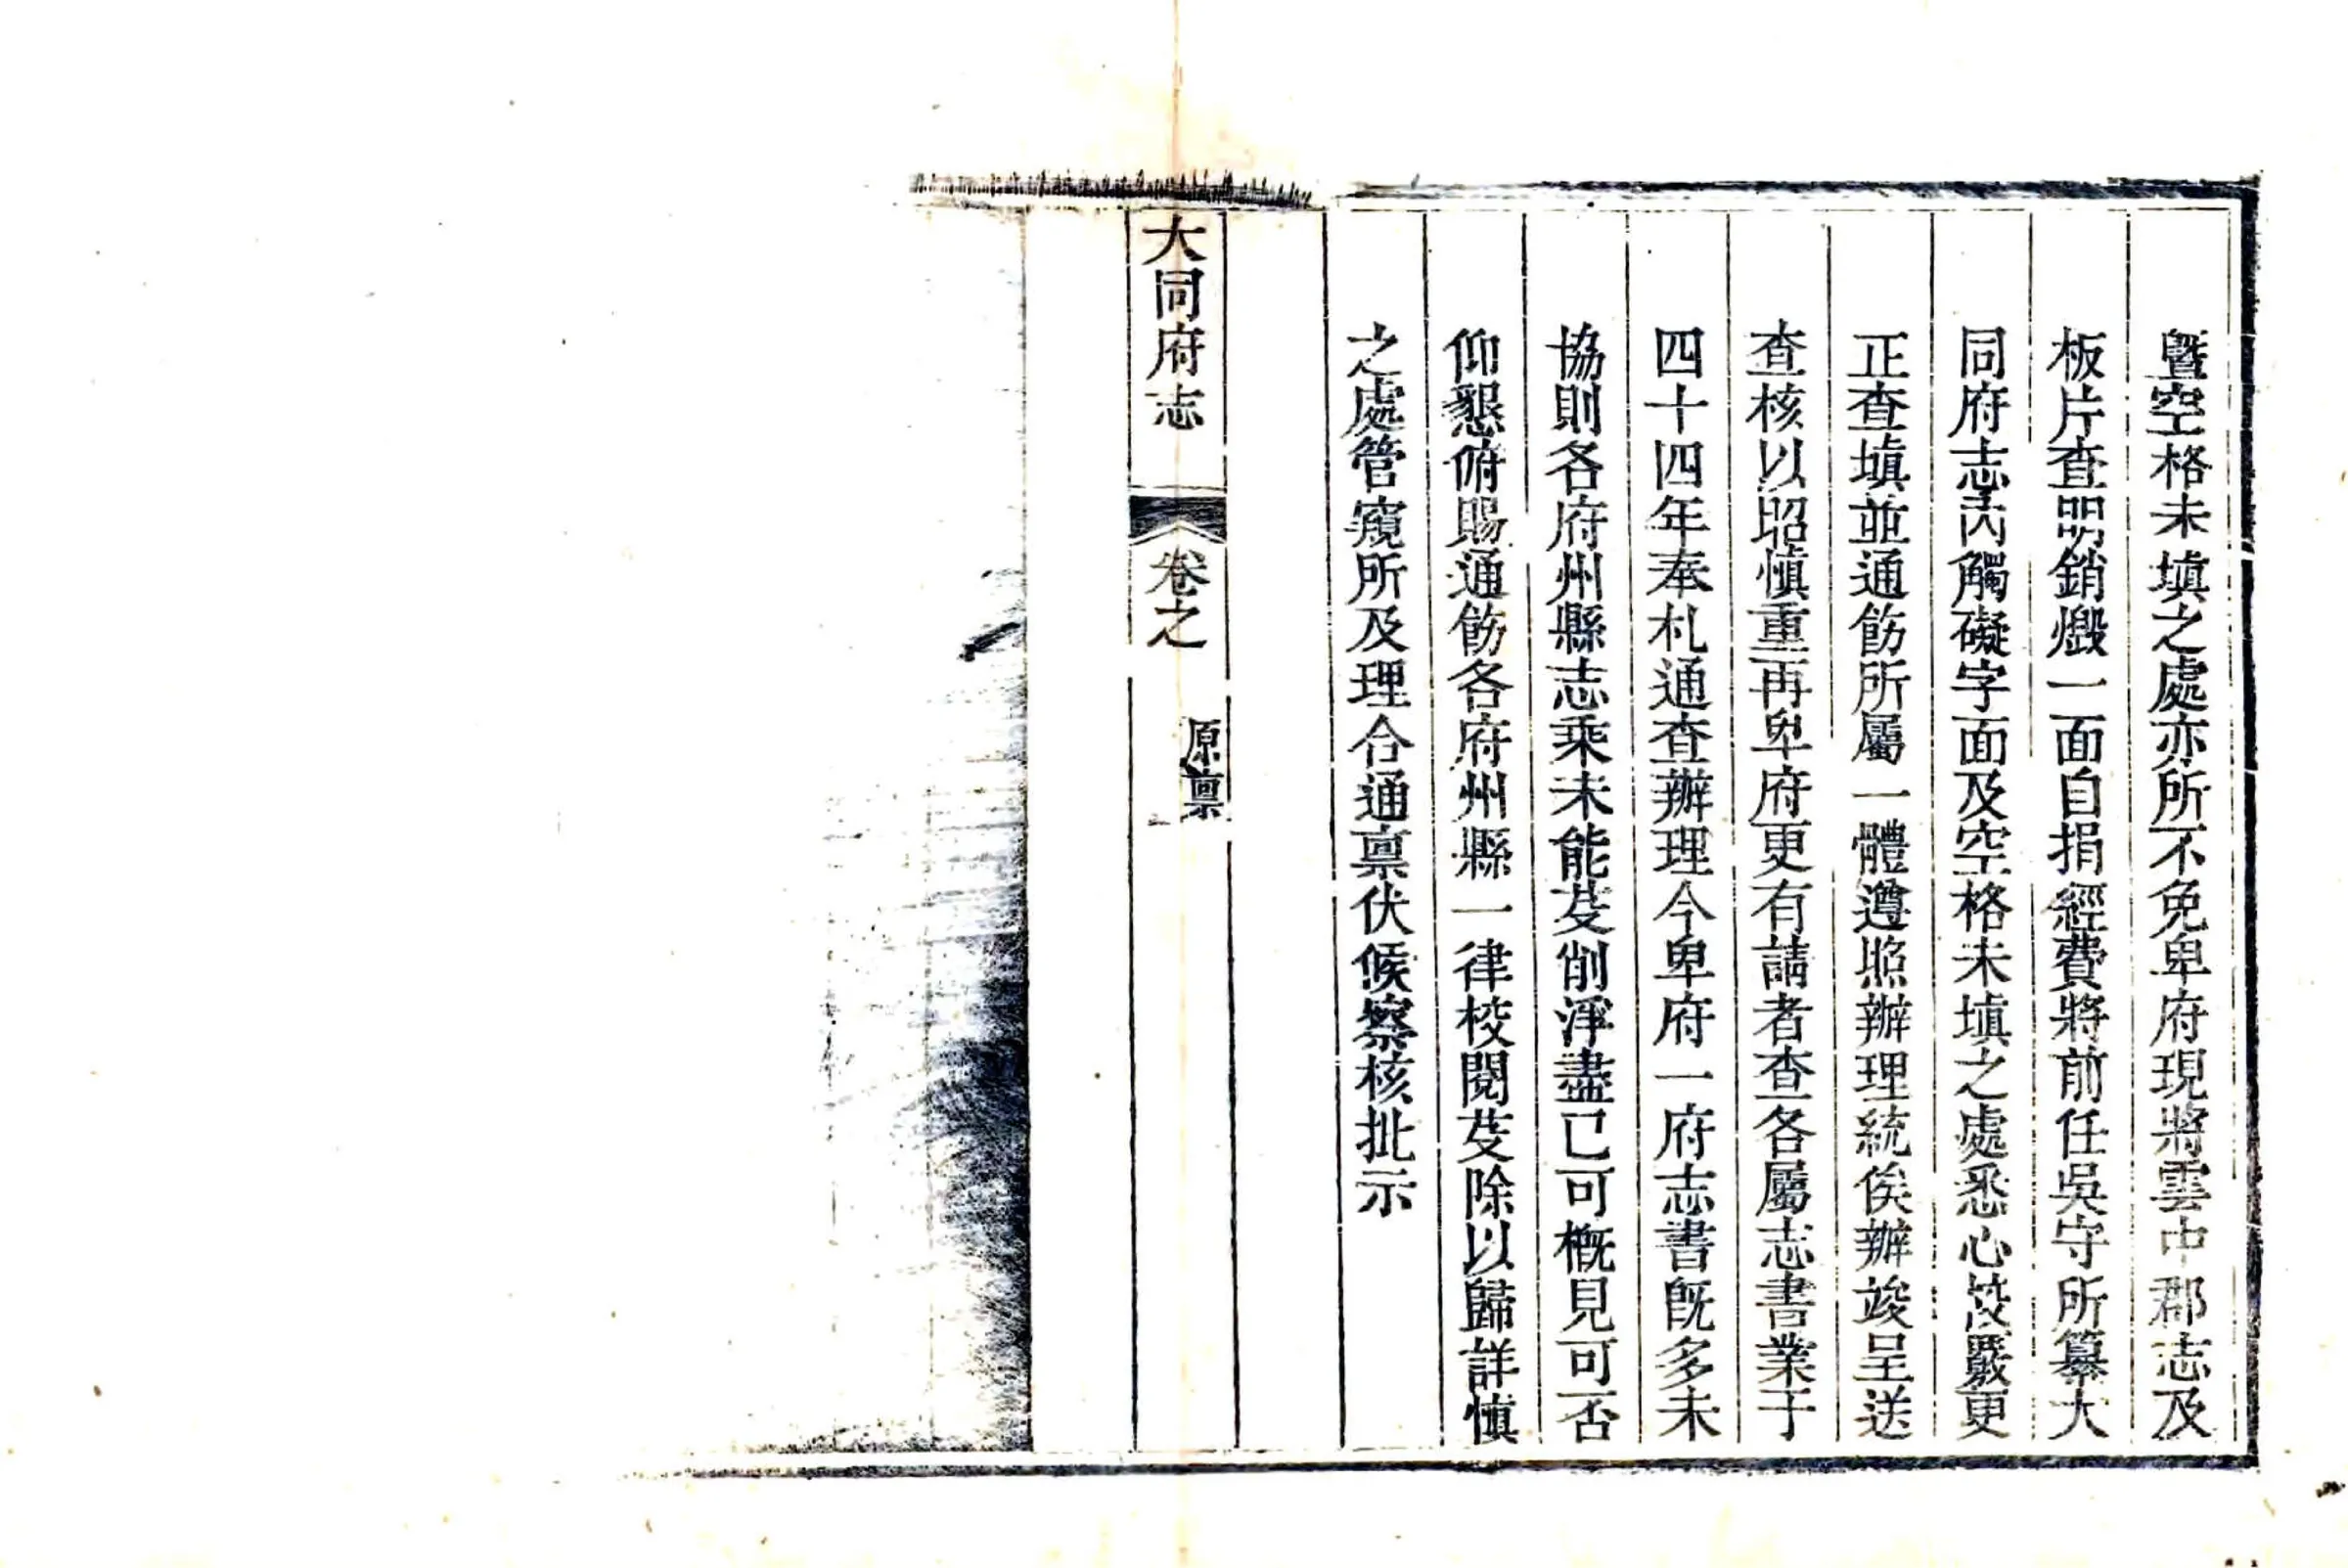 曁空格未塡之處亦所不免卑府現將雲中郡志及
板片查明銷燬一面自捐經費將前任吳守所纂大
同府志內觸礙字面及空格未塡之處悉心芟覈更
正查塡並通飭所屬一體遵照辦理統俟辦竣呈送
查核以昭愼重再卑府更有請者查各屬志書業于
四十四年奉札通查辦理今卑府一府志書旣多未
協則各府州縣志乘未能芟削淨盡已可概見可否
仰懇俯賜通飭各府州縣一律校閱芟除以歸詳愼
之處管窺所及理合通禀伏候察核批示
大同府志
卷之
原禀
二